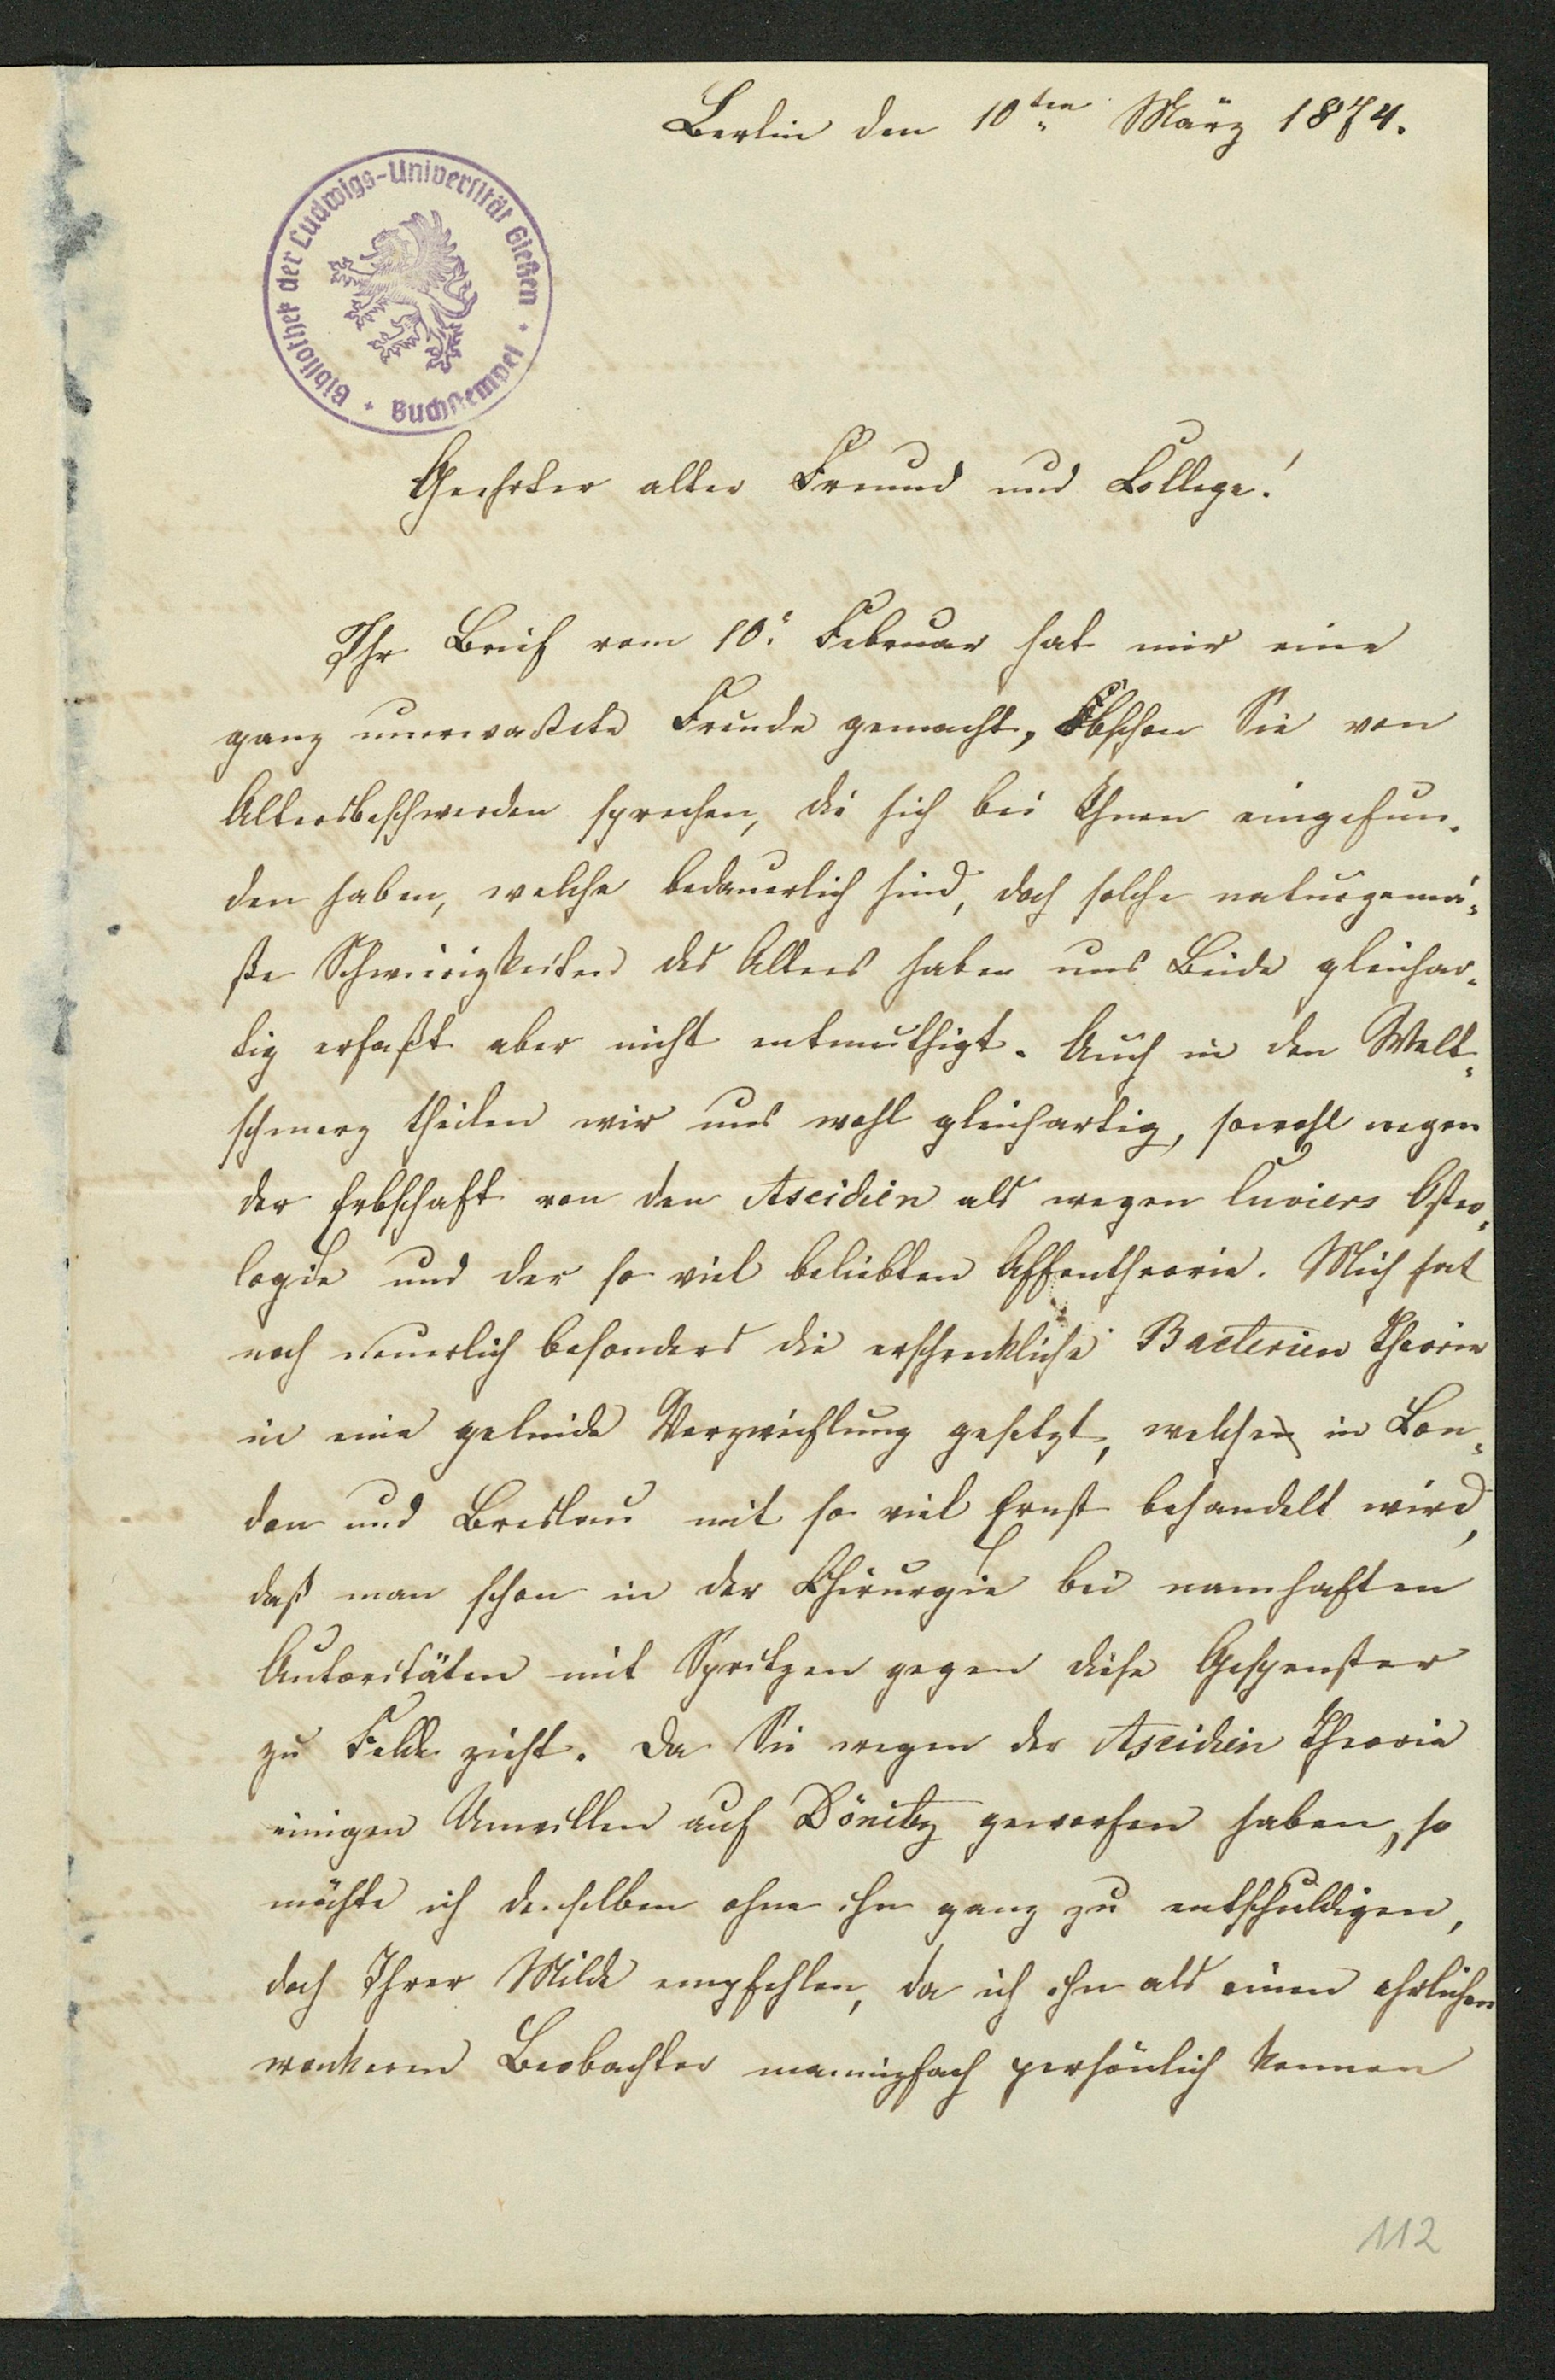 Berlin den 10ten März 1874.
Bibliothek der Ludwigs-Universität Gießen * Buchstempel *
Geehrter alter Freund und College!
Ihr Brief vom 10. Februar hat mir eine
ganz unerwartete Freude gemacht, Obschon Sie von
Altersbeschwerden sprechen, die sich bei Ihnen eingefun-
den haben, welche bedauerlich sind, doch solche naturgemä-
ße Schwierigkeiten des Alters haben uns Beide gleichar-
tig erfaßt aber nicht entmuthigt. Auch in den Welt-
schmerz theilen wir uns wohl gleichartig, sowohl wegen
der Erbschaft von den Ascidien als wegen Cuviers Osteo-
logie und der so viel beliebten Affentheorie. Mich hat
noch neuerlich besonders die erschreckliche Bacterien Theorie
in eine gelinde Verzweiflung gesetzt, welche in Lon-
don und Breslau mit so viel Ernst behandelt wird,
daß man schon in der Chirurgie bei namhaften
Autoritäten mit Spritzen gegen diese Gespenster
zu Felde zieht. Da Sie wegen der Ascidien Theorie
einigen Unwillen auf Dönitz geworfen haben, so
möchte ich denselben ohne ihn ganz zu entschuldigen,
doch Ihrer Milde empfehlen, da ich ihn als einen ehrlichen
wackeren Beobachter mannigfach persönlich kennen
112